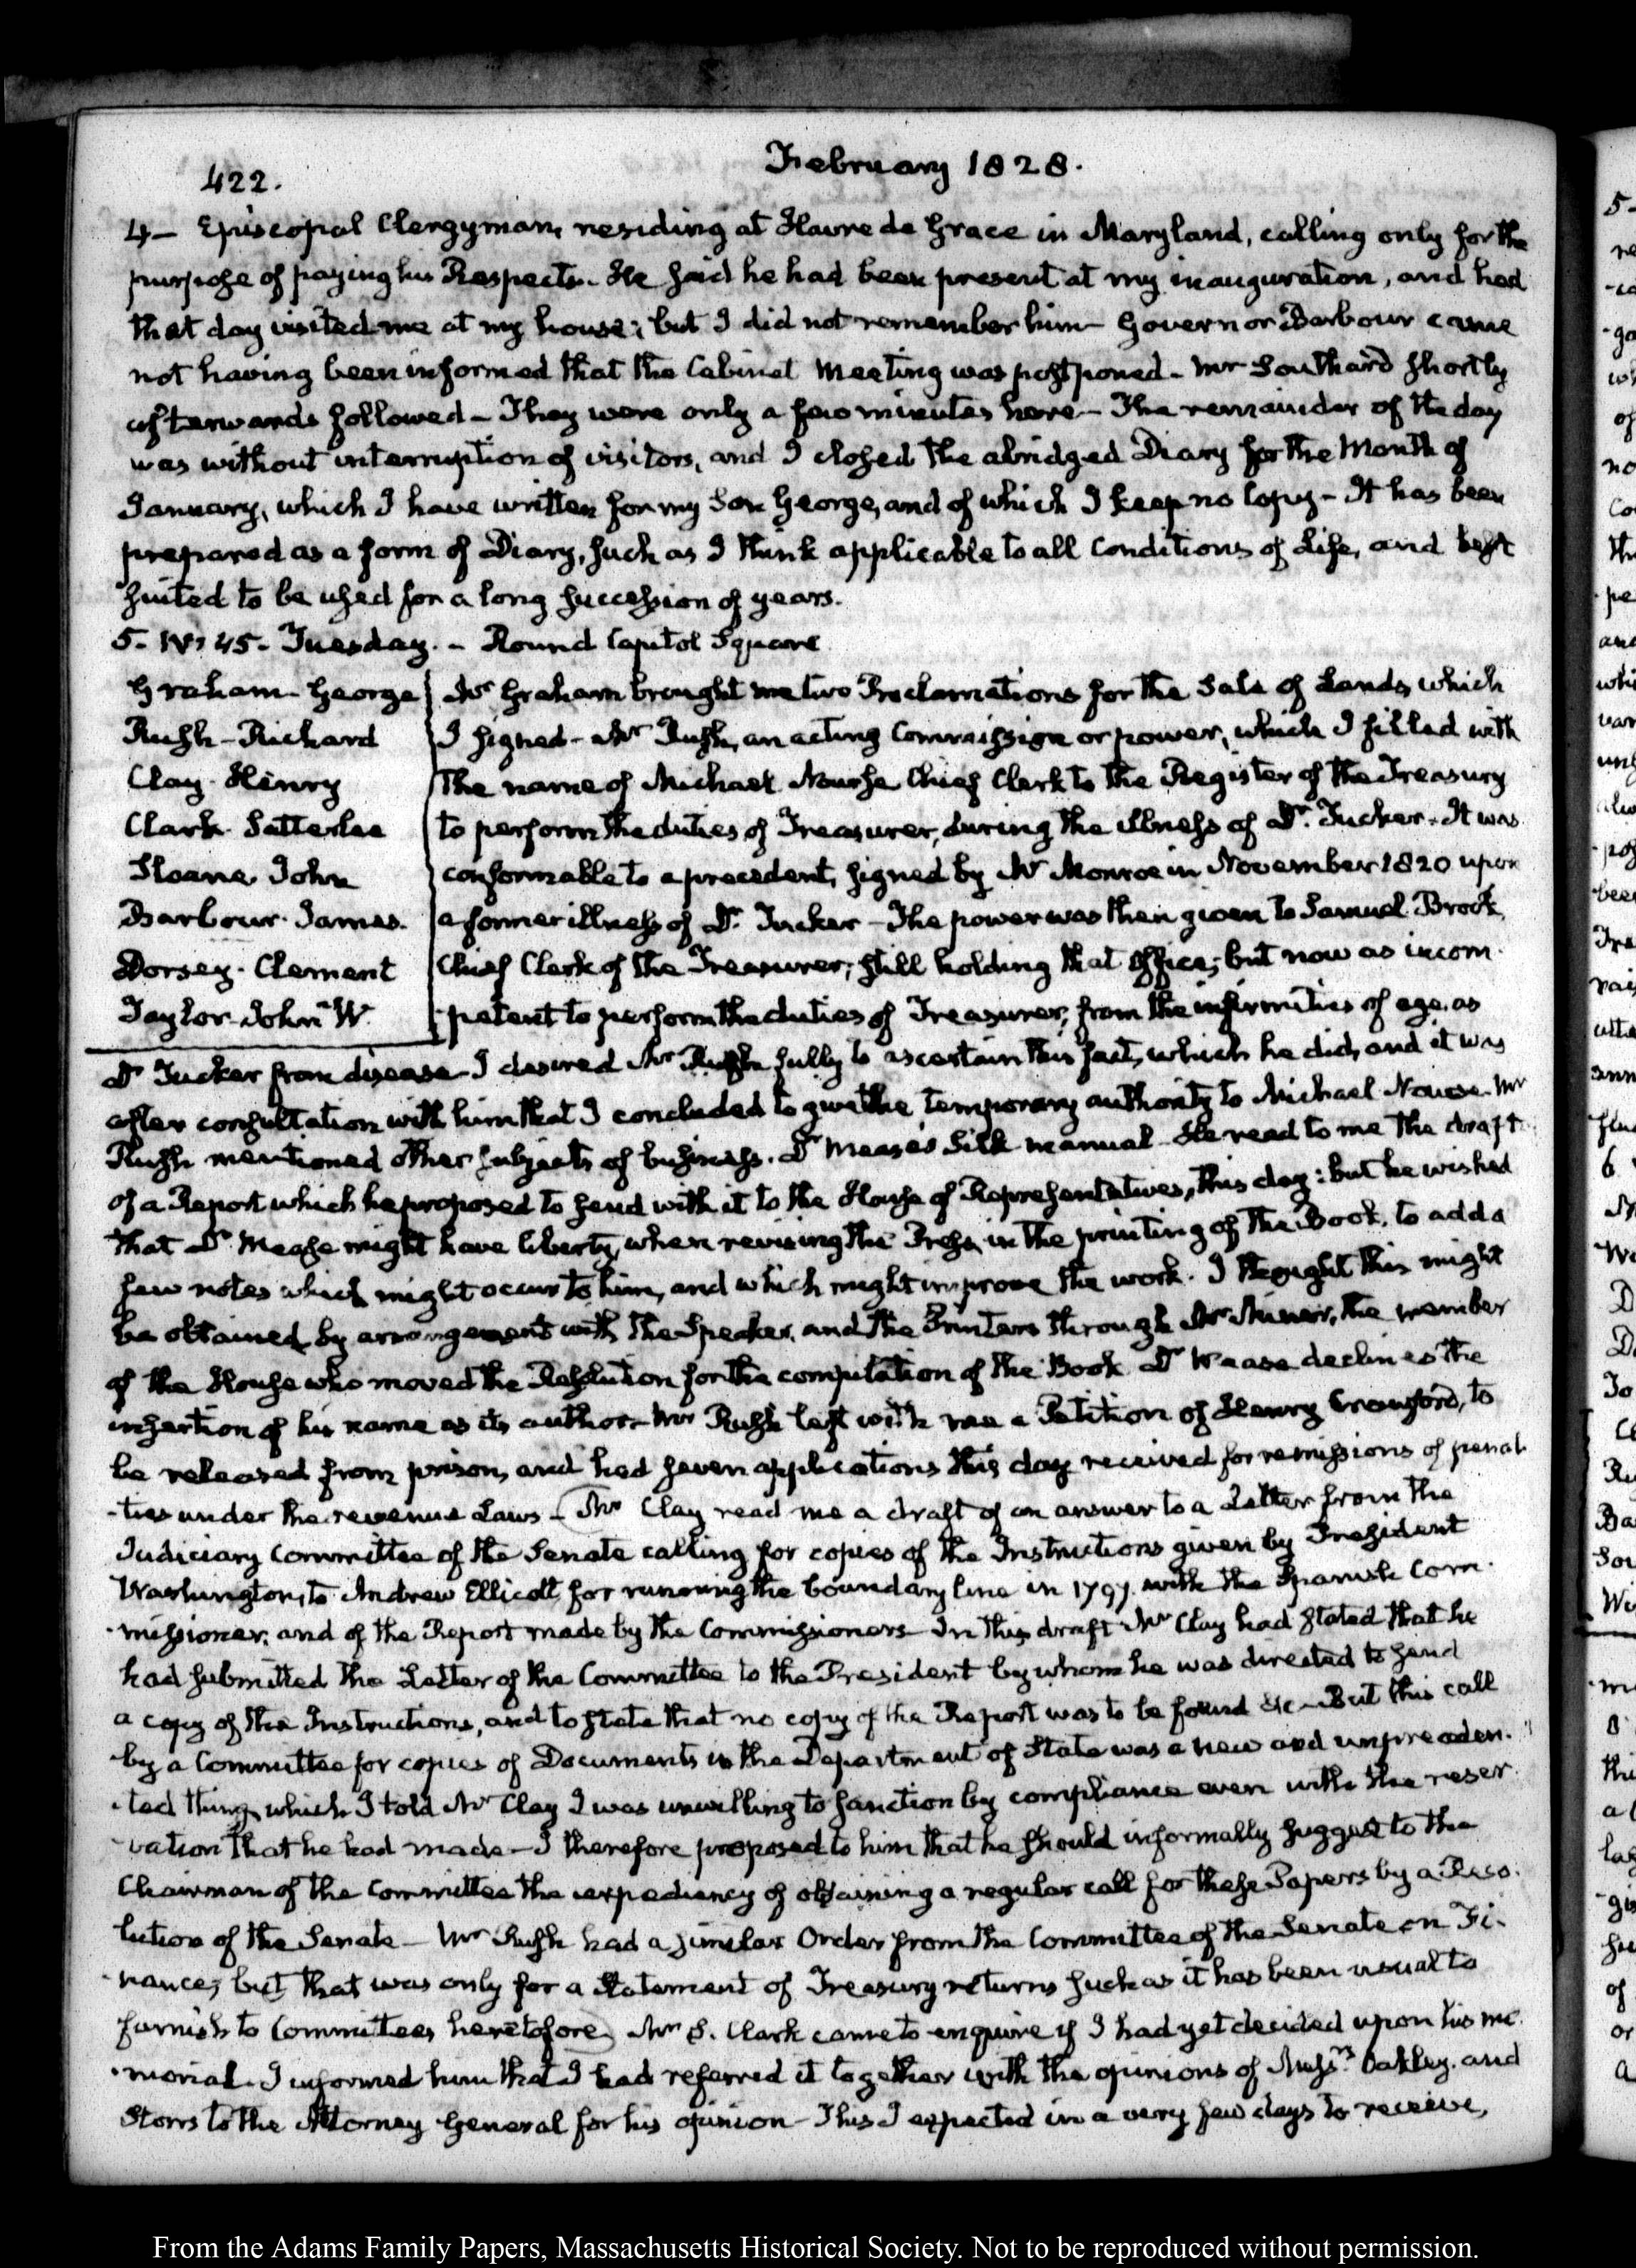 422.
February 1828.
4— Episcopal Clergyman, residing at Havre de Grace in Maryland, calling only for the
purpose of paying his Respects. He said he had been present at my inauguration, and had
that day visited me at my house; but I did not remember him— Governor Barbour came
not having been informed that the Cabinet Meeting was postponed— Mr Southard shortly
afterwards followed— They were only a few minutes here— The remainder of the day
was without interruption of visitors, and I closed the abridged Diary for the Month of
January, which I have written for my Son George, and of which I keep no Copy— It has been
prepared as a form of Diary, such as I think applicable to all conditions of Life, and best
suited to be used for a long succession of years.
5. IV: 45. Tuesday. — Round Capitol Square
Graham— George
Rush— Richard
Clay— Henry
Clark Satterlee
Sloane John
Barbour— James.
Dorsey— Clement
Taylor— John W.
Mr Graham brought me two Proclamations for the Sale of Lands, which
I signed— Mr Rush, an acting Commission or power, which I filled with
the name of Michael Nourse Chief Clerk to the Register of the Treasury
to perform the duties of Treasurer, during the illness of Dr. Tucker. It was
conformable to a precedent, signed by Mr Monroe in November 1820 upon
a former illness of Dr. Tucker— The power was then given to Samuel Brook,
Chief Clerk of the Treasurer; still holding that Office; but now as incom-
-petent to perform the duties of Treasurer, from the infirmities of age, as
Dr Tucker from disease— I desired Mr Rush fully to ascertain this fact, which he did, and it was
after consultation with him that I concluded to give the temporary authority to Michael Nourse— Mr
Rush mentioned other subjects of business. Dr Mease's Silk manual— He read to me the draft
of a Report which he proposed to send with it to the House of Representatives, this day: but he wished
that Dr Mease might have liberty, when revising the Press, in the printing of the Book, to add a
few notes which might occur to him, and which might improve the work. I thought this might
be obtained by arrangement with the Speaker, and the Printers through Mr Miner, the member
of the House who moved the Resolution for the compilation of the Book Dr Mease declines the
insertion of his name as its author— Mr Rush left with me a Petition of Henry Crawford, to
be released from prison, and had seven applications this day received for remissions of penal-
-ties under the revenue Laws— Mr Clay read me a draft of an answer to a Letter from the
Judiciary Committee of the Senate calling for copies of the Instructions given by President
Washington, to Andrew Ellicott for running the boundary line in 1797. with the Spanish Com-
-missioner; and of the Report made by the Commissioners— In this draft Mr Clay had stated that he
had submitted the Letter of the Committee to the President by whom he was directed to send
a copy of the Instructions, and to state that no copy of the Report was to be found &c— But this call
by a Committee for copies of Documents in the Department of State was a new and unpreceden-
-ted thing, which I told Mr Clay I was unwilling to sanction by compliance even with the reser-
-vation that he had made— I therefore proposed to him that he should informally suggest to the
Chairman of the Committee the expediency of obtaining a regular call for these Papers by a Reso-
lution of the Senate— Mr Rush had a similar Order from the Committee of the Senate on Fi-
-nance; but that was only for a Statement of Treasury returns such as it has been usual to
furnish to Committees heretofore. Mr S. Clark came to enquire if I had yet decided upon his me-
-morial. I informed him that I had referred it together with the opinions of Messrs. Oakley and
Storrs to the Attorney General for his opinion— This I expected in a very few days to receive,
From the Adams Family Papers, Massachusetts Historical Society. Not to be reproduced without permission.